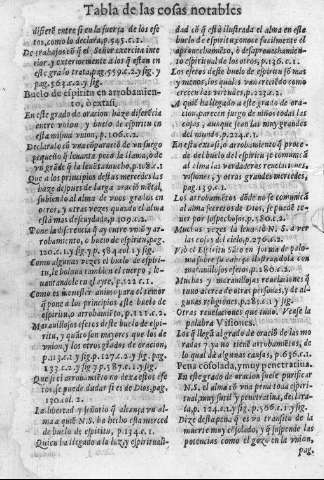 Tabla de las cosas notables
difere entre si en la fuerça de los efe
tos, como lo declara, p.545.c.2.
De trabajos cõ q̃ el Señor exercita inte
rior, y exteriormente a los q̃ estan en
este grado trata, pag. 559.c.2. y sig. y
pag. 563.c.2. y sig.
Buelo de espiritu en arrobamien-
to, o extasi.
En este grado de oracion haze diferẽcia
entre vnion y buelo de espiritu en
esta misma vnion, p.106.c.2.
por
y vn grãde q̃
Que a los principios destas mercedes las
haze despues de larga oraciõ mẽtal,
subiendo al alma de vnos grados en
otros, y otras vezes quando el alma
esta mas descuydada, p.109.c.2.
Pone la diferencia q̃ ay entre vniõ y ar-
robamiento, o buelo de espiritu, pag.
120.c.1. y sig. y p. 584. col. 1. y sig.
Como algunas vezes el buelo de espiri-
tu, le bolaua tambien el cuerpo, le-
uantandole en el ayre, p.121.c.1.
Como es menester animo para el temor
q̃ pone a los principios este buelo de
espiritu, o arrobamiẽto, p.121.c.2.
Marauillosos efetos deste buelo de espi-
ritu, y quãto son mayores que los de
vnion, y los otros grados de oracion,
p.113.c.1 y sig. p.127.c.2. y sig. pag.
133.c.2 y sig. p.587.c.1. y sig.
Que si el arrobamiẽto no dexa estos efe
tos, se puede dudar si es de Dios, pag.
130. col. 2.
La libertad y señorio q̃ alcança vn al-
ma a quiẽ N.S. ha hecho esta merced
de buelo de espiritu, p.134.c.1.
Quien ha llegado a la luz, y espirituali-
dad cõ q̃ està ilustrada el alma en este
buelo de espiritu, conoce facilmente el
aprouechamiẽto, o desaprouechamien-
to espiritual de los otros, p.136.c.1.
Los efetos deste buelo de espiritu sõ mas
y menos, los quales van creciendo como
crecen las virtudes, p.223.c.1.
A quiẽ ha llegado a este grado de ora-
cion, parecen juego de niños todas las
cosas, aunque sean las muy grandes
del mundo, p.224.c.1.
En esta extasi, o arrobamiento q̃ proce-
de del buelo del espiritu, se comunicã
al alma las verdaderas reuelaciones,
visiones, y otras grandes mercedes,
pag. 139.c.1.
Los arrobamientos dõde no se comunicã
al alma secretos de Dios, se puedẽ te-
ner por sospechosos, p.580.c.2.
Muchas vezes la leuantò N.S. a ver
las cosas del cielo, p.276.c.2.
Viò el Espiritu Sãto en forma de palo-
ma sobre su cabeça ilustrandola con
marauillosos efetos, p.280.c.2.
Muchas y marauillosas reuelaciones q̃
tuuo acerca de otras personas, y de al-
gunas religiones, p.281.c.1 y sig.
Otras reuelaciones que tuuo. Vease la
palabra Visiones.
Los q̃ llegã al grado de oraciõ de las mo
radas 7. ya no tienẽ arrobamiẽtos, de
lo qual da algunas causas, p.636.c.1.
Pena cõsolada, y muy penetratiua.
En este grado de oracion suele purificar
N.S. el alma cõ vna pena toda espiri-
tual, muy sutil y penetratiua, declara-
la, p.124.c.1. y sig. p.566.c.1. y sig.
Dize desta pena, q̃ es vn transito de la
muerte muy cõsolado, y q̃ suspende las
potencias como el gozo en la vnion,
pag.